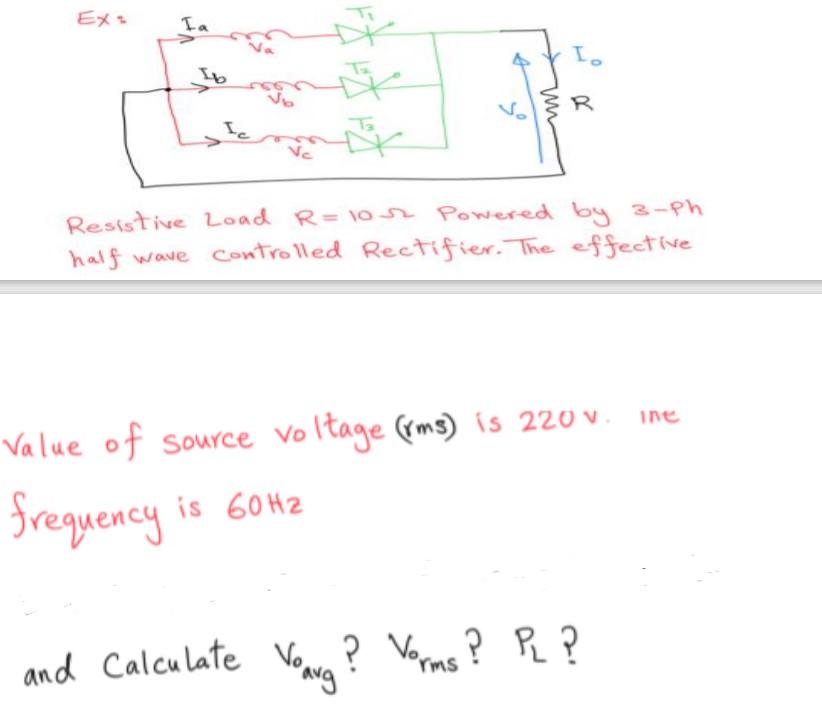 Ex:
Ia
Va
T1
Ib
Vb
T2
Ic
Vc
T3
Io
Vo
R
Resistive Load R = 10 Ω Powered by 3-Ph
half wave Controlled Rectifier. The effective
Value of source voltage (rms) is 220 v. The
frequency is 60Hz
and Calculate Vo avg? Vo rms? PL?